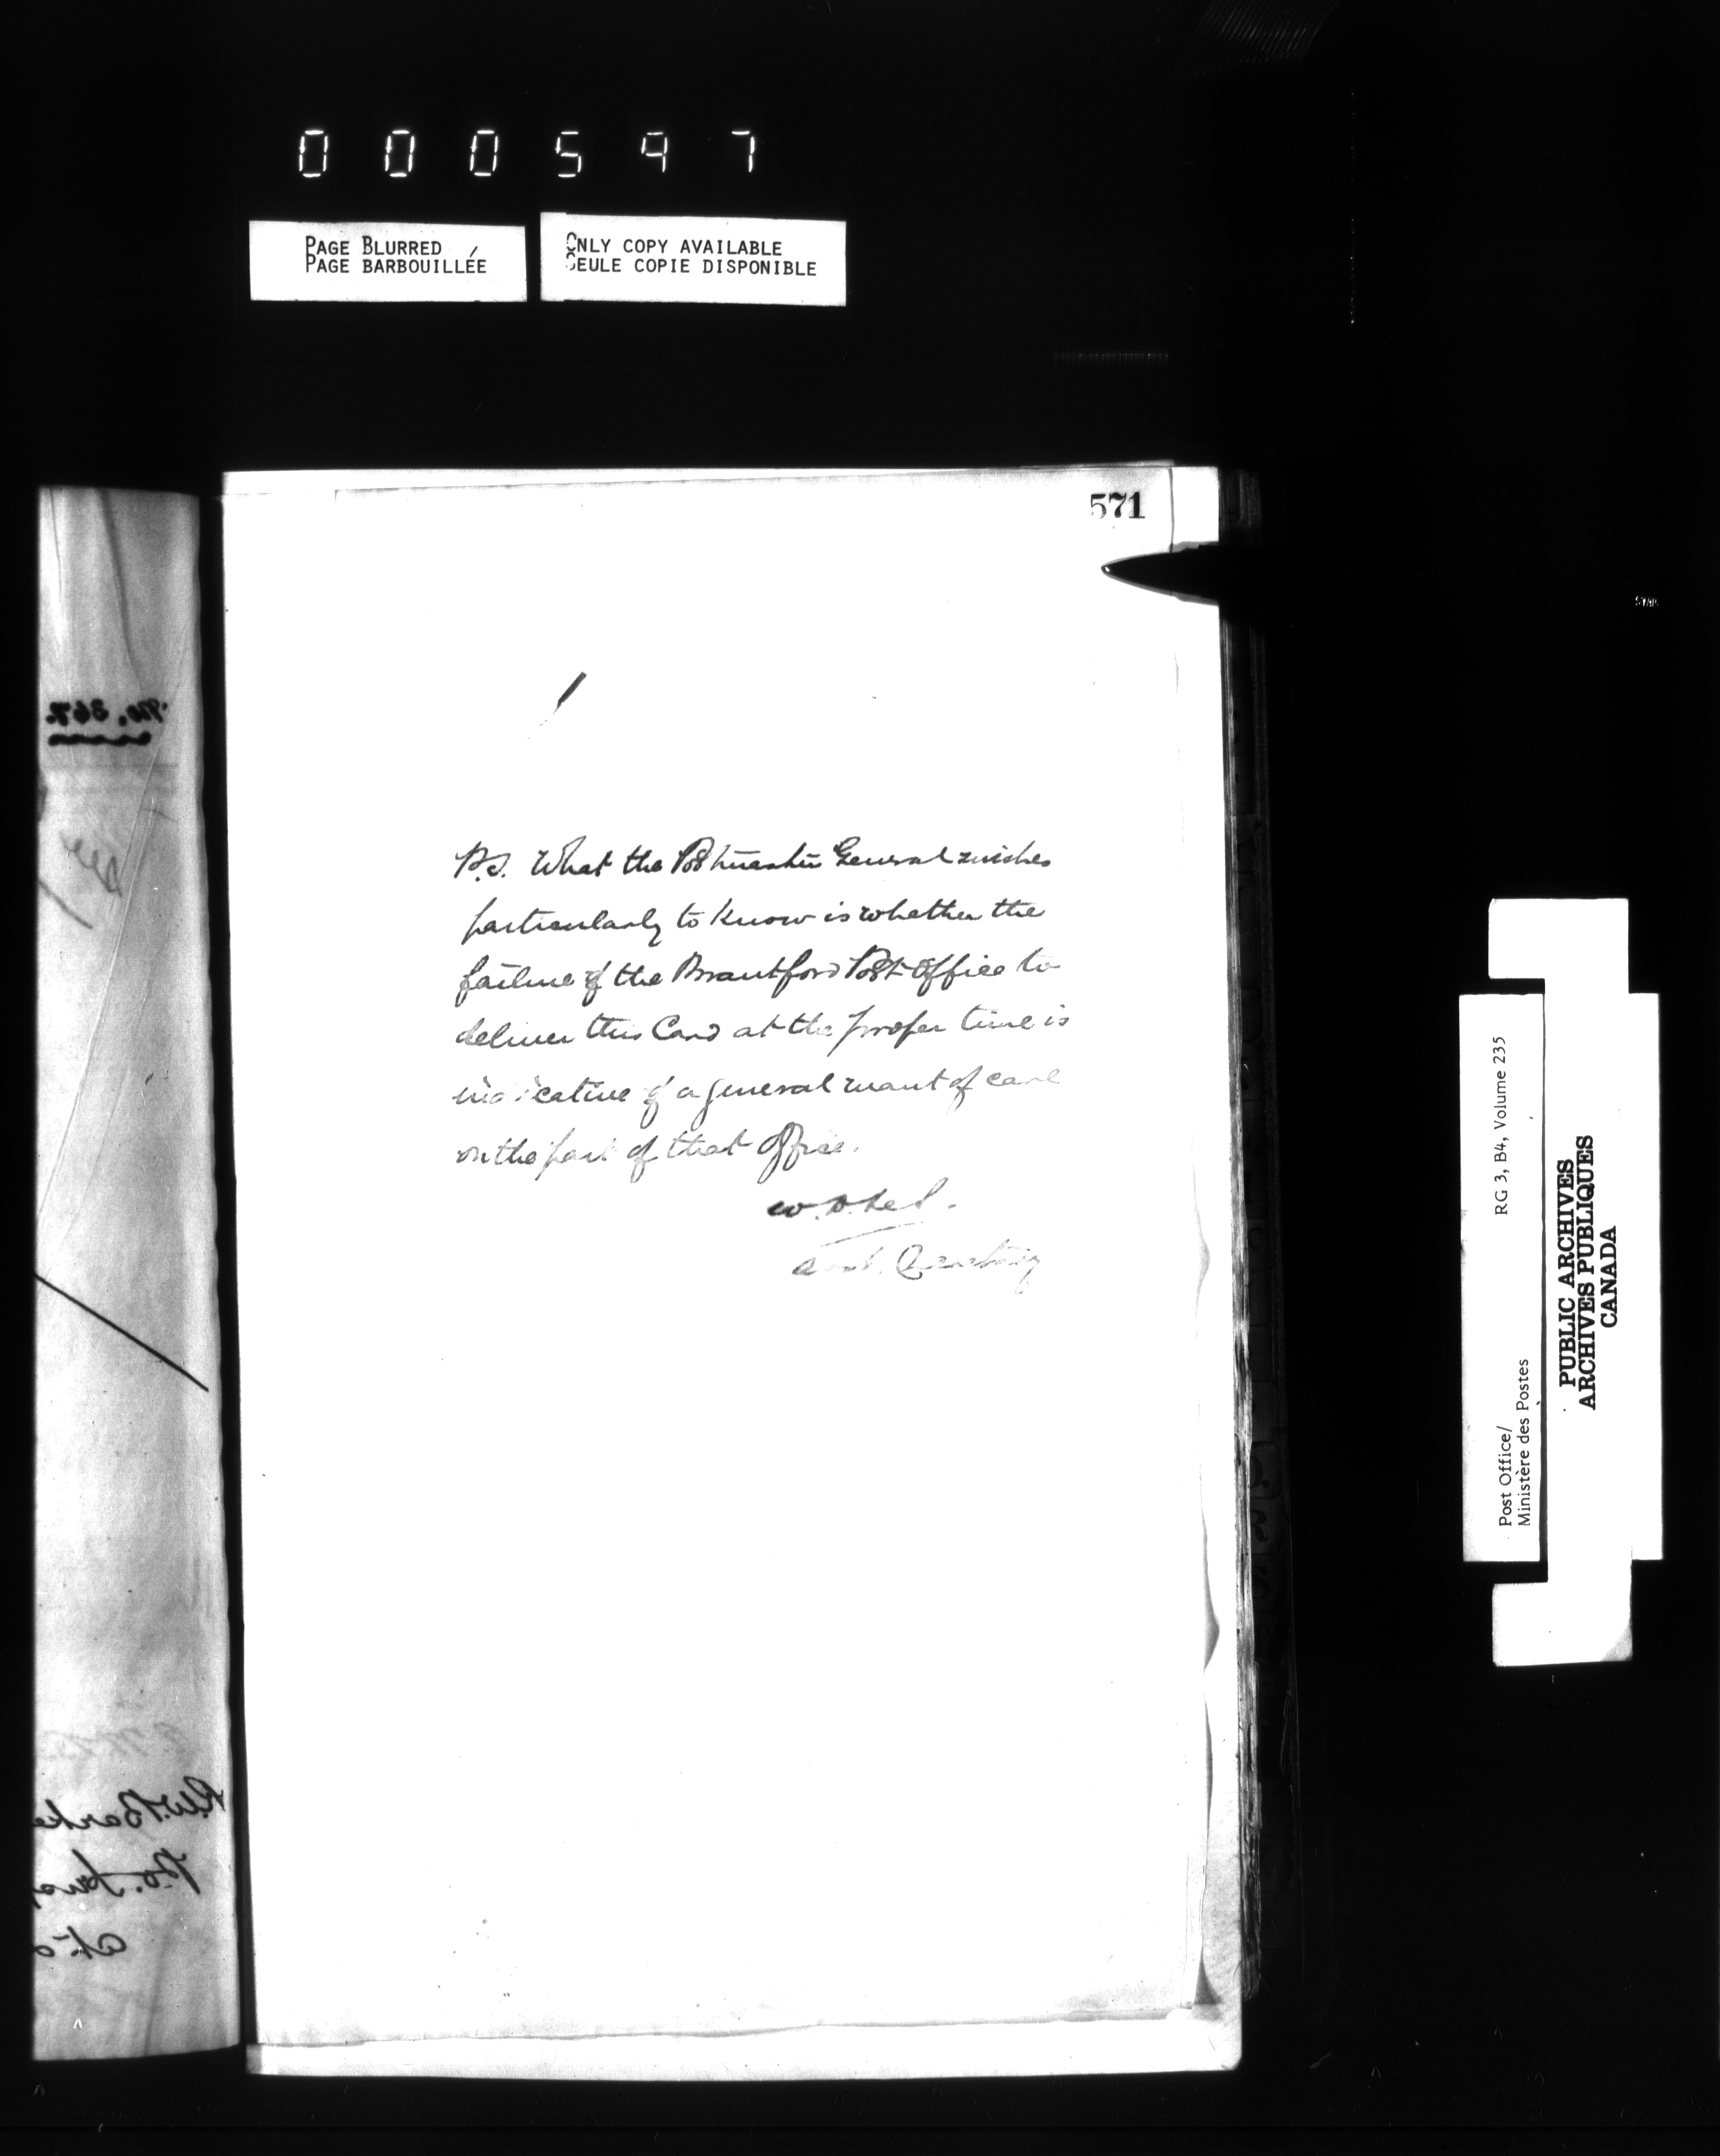 000597
PAGE BLURRED
PAGE BARBOUILLÉE
ONLY COPY AVAILABLE
SEULE COPIE DISPONIBLE
571
No. 367.
P.S. What the Postmaster General wishes
particularly to know is whether the
failure of the Brantford Post Office to
deliver this Card at the proper time is
indicative of a general want of care
on the part of that Office.
Secretary
R.W. Barke
P.O. Insp
RG 3, B4, Volume 235
Post Office/
Ministère des Postes
PUBLIC ARCHIVES
ARCHIVES PUBLIQUES
CANADA